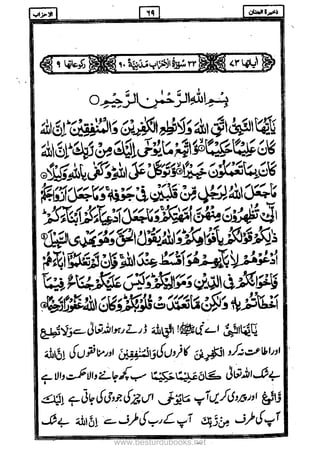 ذخیرة الجنان ٦٩ الاحزاب
آیاتھا ٧٣ ٣٣ سُوْرَةُ الْاَحْزَابِ مَدَنِیَّةٌ ٩٠ رکوعاتھا ٩
بِسْمِ اللّٰهِ الرَّحْمٰنِ الرَّحِیْمِ
یٰۤاَیُّهَا النَّبِیُّ اتَّقِ اللّٰهَ وَلَا تُطِعِ الْكٰفِرِیْنَ وَالْمُنٰفِقِیْنَ ؕ اِنَّ اللّٰهَ
كَانَ عَلِیْمًا حَكِیْمًا ۙ وَّاتَّبِعْ مَا یُوْحٰۤی اِلَیْكَ مِنْ رَّبِّكَ ؕ اِنَّ اللّٰهَ
كَانَ بِمَا تَعْمَلُوْنَ خَبِیْرًا ۙ وَّتَوَكَّلْ عَلَی اللّٰهِ ؕ وَكَفٰی بِاللّٰهِ وَكِیْلًا
مَا جَعَلَ اللّٰهُ لِرَجُلٍ مِّنْ قَلْبَیْنِ فِیْ جَوْفِهٖ ۚ وَمَا جَعَلَ اَزْوَاجَكُمُ
الّٰٓـِٔیْ تُظٰهِرُوْنَ مِنْهُنَّ اُمَّهٰتِكُمْ ۚ وَمَا جَعَلَ اَدْعِیَآءَكُمْ اَبْنَآءَكُمْ ؕ
ذٰلِكُمْ قَوْلُكُمْ بِاَفْوَاهِكُمْ ؕ وَاللّٰهُ یَقُوْلُ الْحَقَّ وَهُوَ یَهْدِی السَّبِیْلَ
اُدْعُوْهُمْ لِاٰبَآئِهِمْ هُوَ اَقْسَطُ عِنْدَ اللّٰهِ ۚ فَاِنْ لَّمْ تَعْلَمُوْۤا اٰبَآءَهُمْ
فَاِخْوَانُكُمْ فِی الدِّیْنِ وَمَوَالِیْكُمْ ؕ وَلَیْسَ عَلَیْكُمْ جُنَاحٌ فِیْمَاۤ
اَخْطَاْتُمْ بِهٖ ۙ وَلٰكِنْ مَّا تَعَمَّدَتْ قُلُوْبُكُمْ ؕ وَكَانَ اللّٰهُ غَفُوْرًا رَّحِیْمًا
یٰۤاَیُّهَا النَّبِیُّ اے نبی ﷺ! اتَّقِ اللّٰهَ ڈرتے رہو اللہ تعالیٰ سے وَلَا تُطِعِ
اور اطاعت نہ کرو الْكٰفِرِیْنَ کافروں کی وَالْمُنٰفِقِیْنَ اور منافقوں کی اِنَّ اللّٰهَ
بے شک اللہ تعالیٰ كَانَ عَلِیْمًا حَكِیْمًا سب کچھ جاننے والا حکمت والا ہے
وَّاتَّبِعْ اور پیروی کریں آپ مَا یُوْحٰۤی اس چیز کی جو وحی کی جاتی ہے اِلَیْكَ
آپ کی طرف مِنْ رَّبِّكَ آپ کے رب کی طرف سے اِنَّ اللّٰهَ بے شک
www.besturdubooks.net